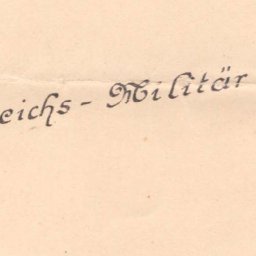 eichs - Militär